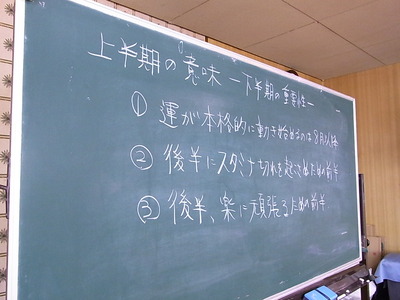 上半期の意味 ―下半期の重要性―
① 運が本格的に動き始めるのは8月以降
② 後半にスタミナ切れを起こさぬための前半
③ 後半、楽に頑張るための前半